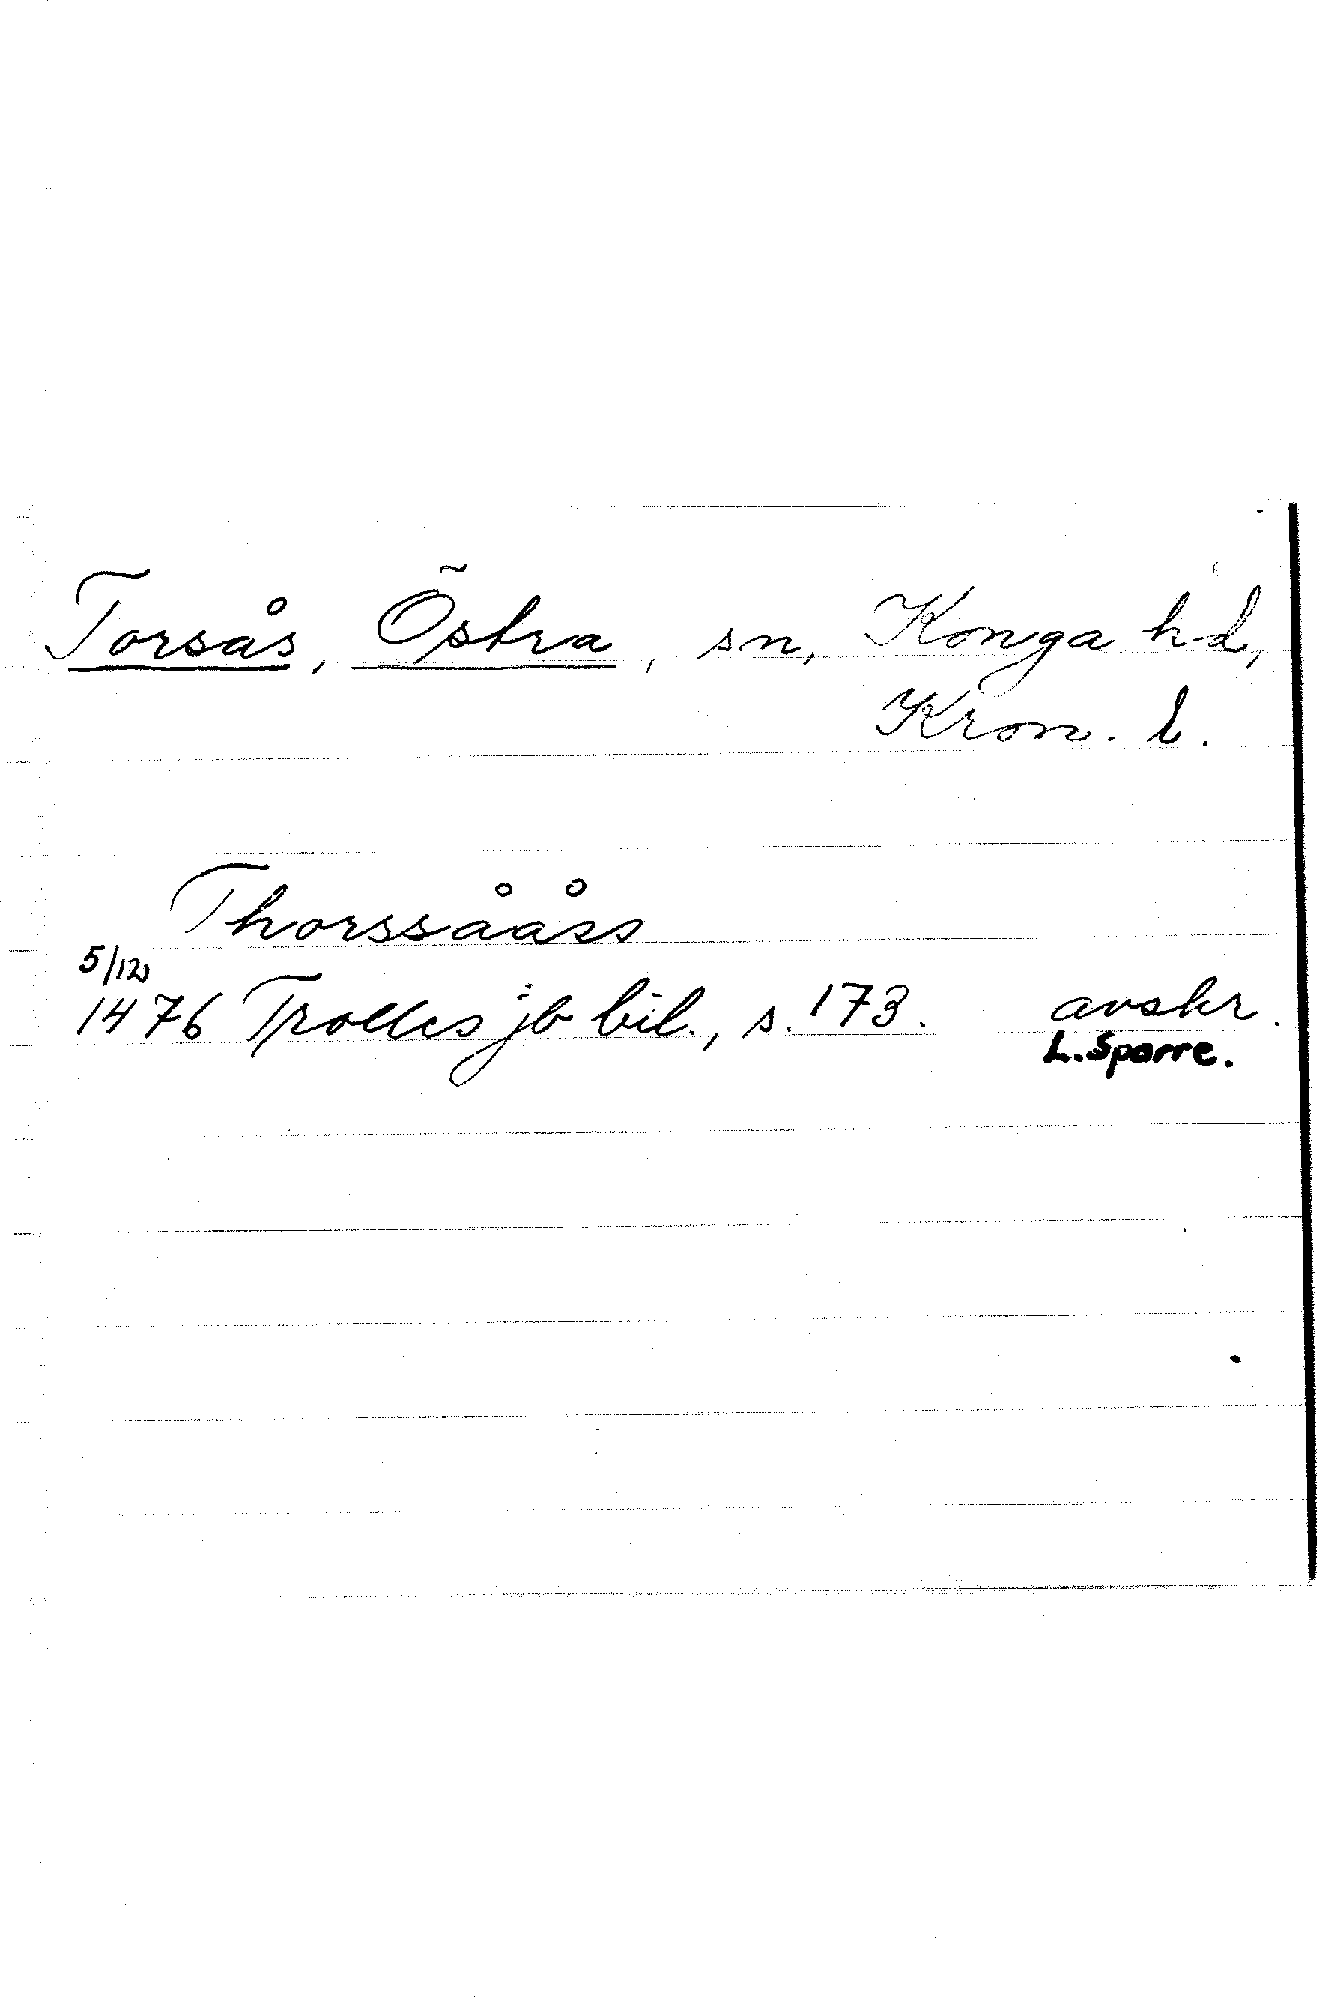 Torsås, Östra, sn, Konga hd,
Kron. l.
Thorssååss
5/12
1476 Trolles jb bil., s. 173. avskr.
L. Sparre.